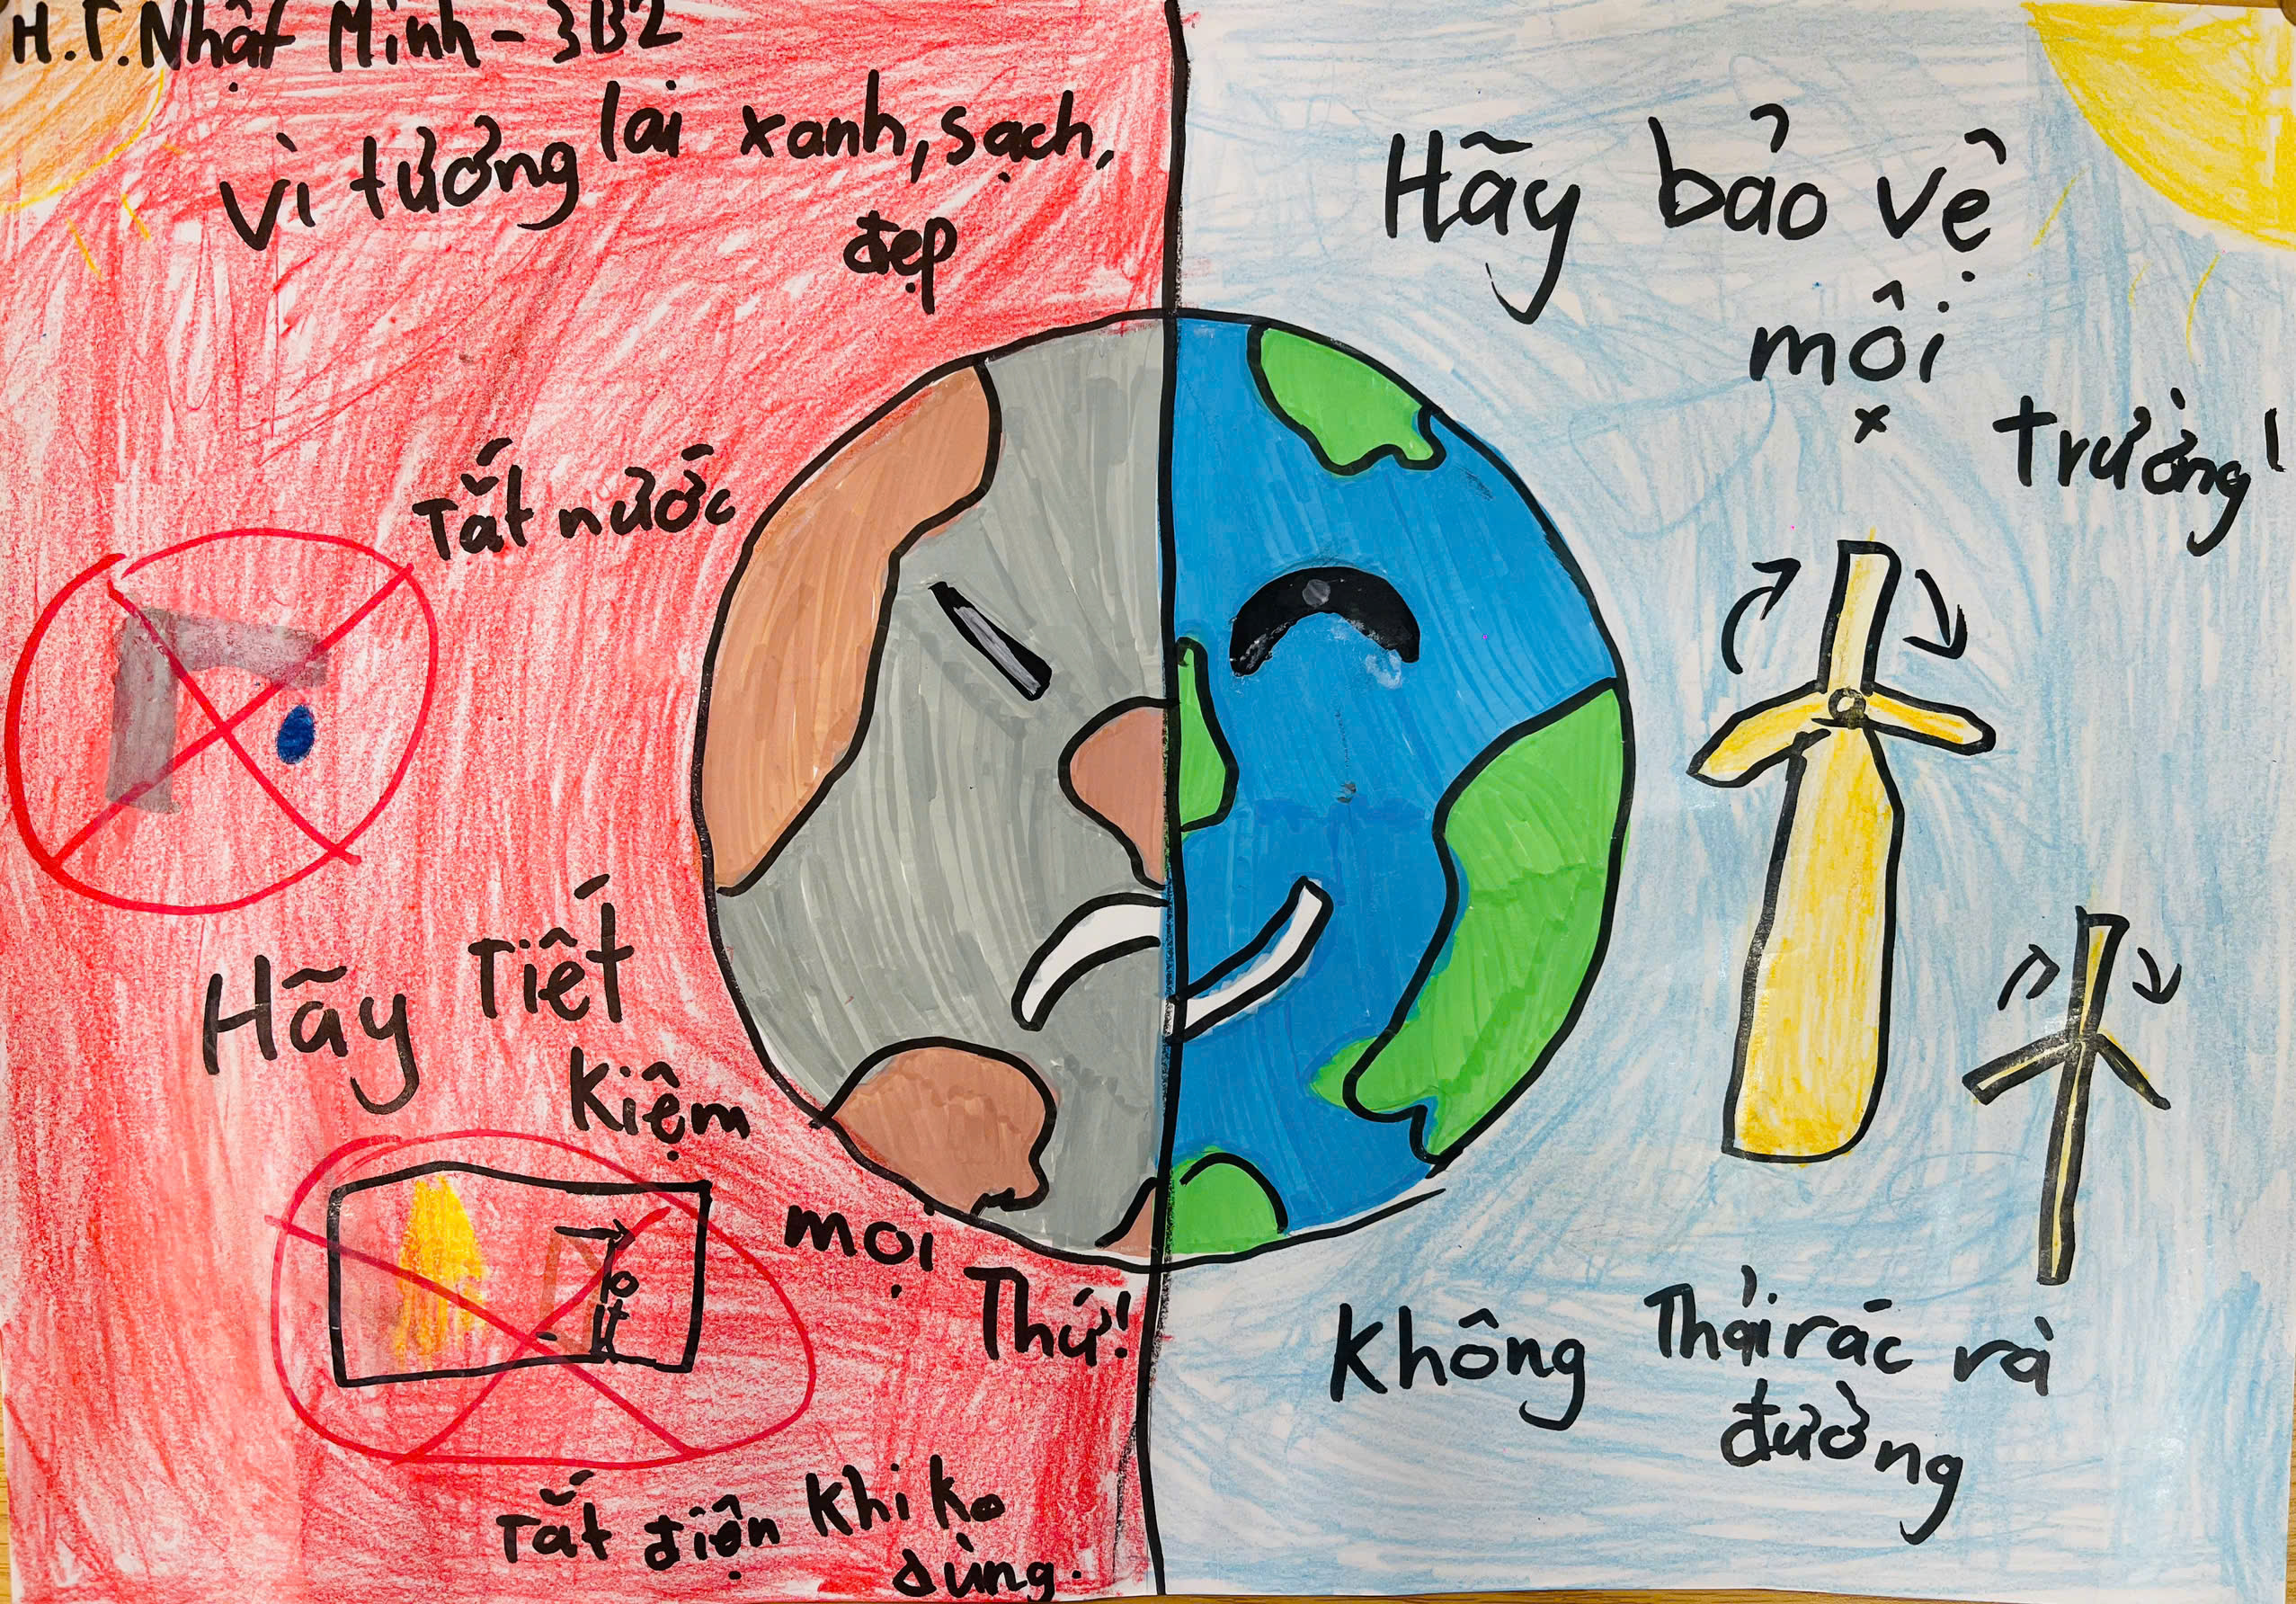 H.T.Nhật Minh - 3B2
Vì tương lai xanh, sạch,
đẹp
Hãy bảo vệ
môi
trường!
Tắt nước
Hãy Tiết
Kiệm
mọi
Thứ!
Tắt điện khi ko
dùng.
Không Thải rác ra
đường